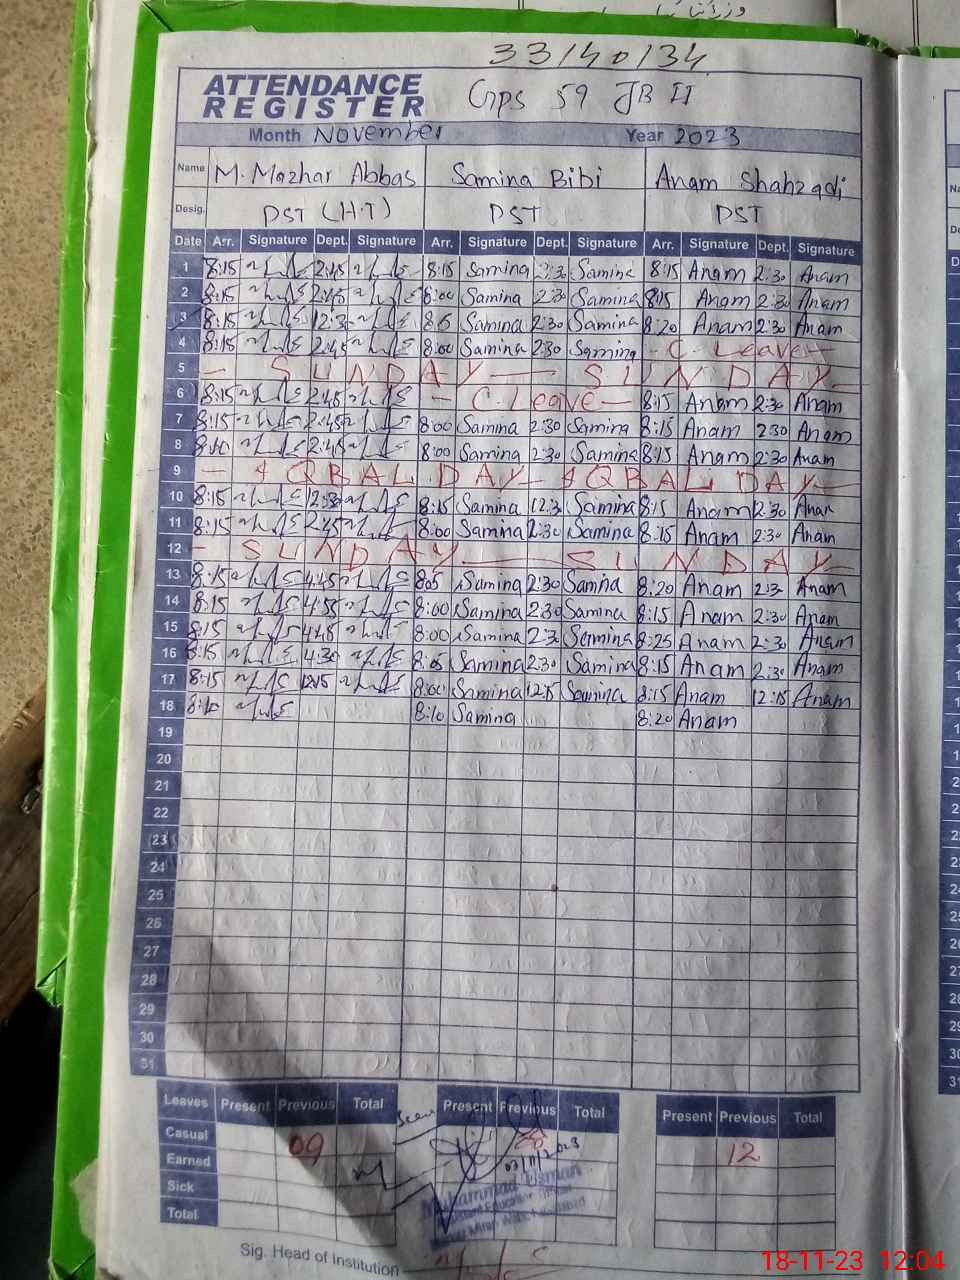 33140134
ATTENDANCE REGISTER GPS 59 JB II
Month November Year 2023
Name M. Mazhar Abbas Samina Bibi Anam Shahzadi
Desig. PST (H.T) PST PST
Date Arr. Signature Dept. Signature Arr. Signature Dept. Signature Arr. Signature Dept. Signature
1 8:15 2:45 8:15 Samina 2:30 Samina 8:15 Anam 2:30 Anam
2 8:15 2:45 8:00 Samina 2:30 Samina 8:15 Anam 2:30 Anam
3 8:15 12:30 8:15 Samina 2:30 Samina 8:20 Anam 2:30 Anam
4 8:15 2:45 8:00 Samina 2:30 Samina - C. Leave -
5 - SUNDAY - SUNDAY -
6 8:15 2:45 - C. Leave - 8:15 Anam 2:30 Anam
7 8:15 2:45 8:00 Samina 2:30 Samina 8:15 Anam 2:30 Anam
8 8:10 2:45 8:00 Samina 2:30 Samina 8:15 Anam 2:30 Anam
9 - IQBAL DAY - IQBAL DAY -
10 8:15 12:30 8:15 Samina 12:3 Samina 8:15 Anam 12:30 Anam
11 8:15 2:45 8:00 Samina 2:30 Samina 8:15 Anam 2:30 Anam
12 - SUNDAY - SUNDAY -
13 8:15 4:45 8:05 Samina 2:30 Samina 8:20 Anam 2:3 Anam
14 8:15 4:55 8:00 Samina 2:30 Samina 8:15 Anam 2:30 Anam
15 8:15 4:45 8:00 Samina 2:3 Samina 8:25 Anam 2:30 Anam
16 8:15 4:30 8:05 Samina 2:30 Samina 8:15 Anam 2:30 Anam
17 8:15 12:15 8:00 Samina 12:15 Samina 8:15 Anam 12:15 Anam
18 8:10 8:10 Samina 8:20 Anam
19
20
21
22
23
24
25
26
27
28
29
30
31
Leaves Present Previous Total Present Previous Total Present Previous Total
Casual 09 12
Earned 03/11/2023
Sick Muhammad Usman
Total
Sig. Head of Institution
18-11-23 12:04